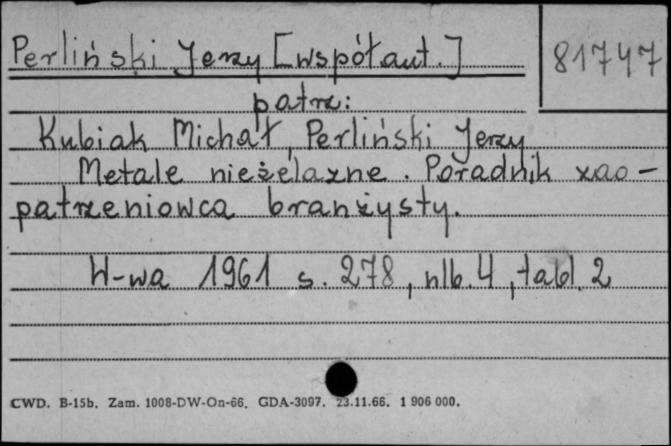 Perliński Jerzy [współaut.]
81747
patrz:
Kubiak Michał, Perliński Jerzy
Metale nieżelazne. Poradnik zao-
patrzeniowca branżysty.
W-wa 1961 s. 278, nlb. 4, tabl. 2
CWD. B-15b. Zam. 1008-DW-On-66. GDA-3097. 23.11.66. 1 906 000.